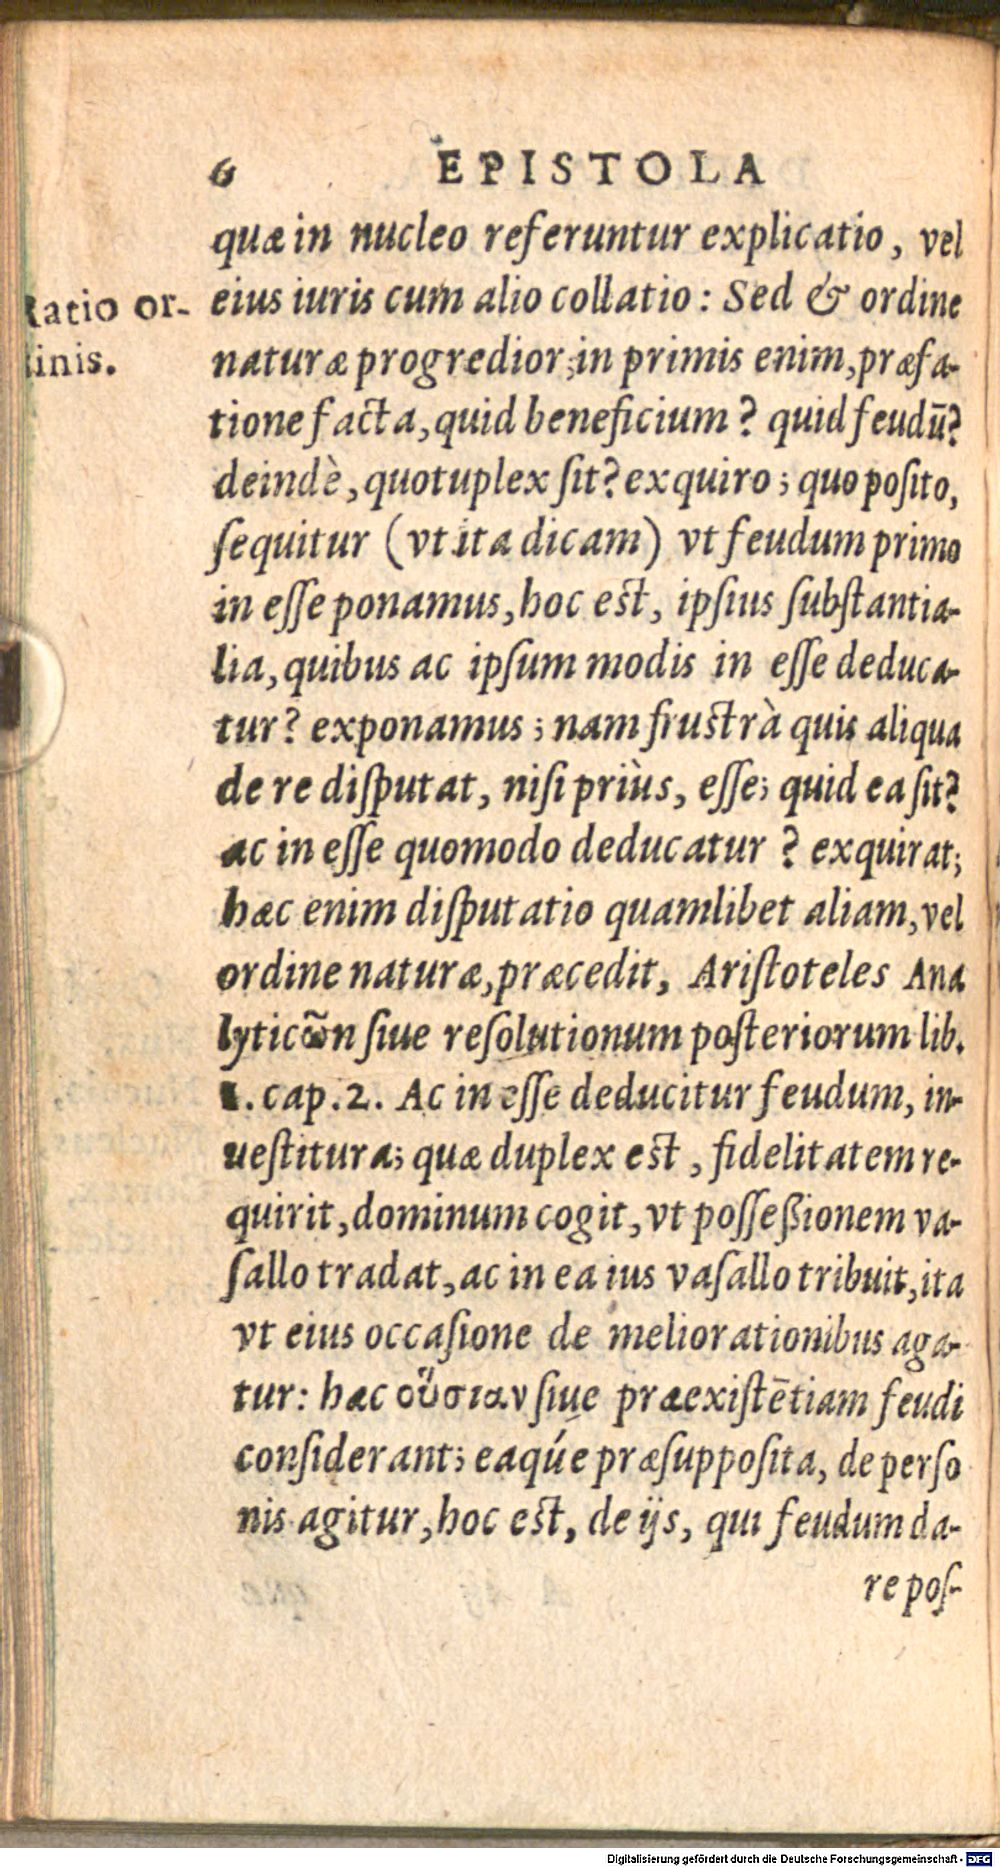 6 EPISTOLA
quæ in nucleo referuntur explicatio, vel
eius iuris cum alio collatio: Sed & ordine
Ratio or-
naturæ progredior; in primis enim, præfa-
dinis.
tione facta, quid beneficium? quid feudū?
deindè, quotuplex ſit? exquiro; quo poſito,
ſequitur (vt ita dicam) vt feudum primo
in eſſe ponamus, hoc eſt, ipſius ſubſtantia-
lia, quibus ac ipſum modis in eſſe deduca-
tur? exponamus; nam fruſtrà quis aliqua
de re diſputat, niſi priùs, eſſe; quid ea ſit?
ac in eſſe quomodo deducatur? exquirat;
hæc enim diſputatio quamlibet aliam, vel
ordine naturæ, præcedit, Ariſtoteles Ana
lyticῶn ſiue reſolutionum poſteriorum lib.
1. cap. 2. Ac in eſſe deducitur feudum, in-
ueſtitura; quæ duplex eſt, fidelitatem re-
quirit, dominum cogit, vt poſſeßionem va-
ſallo tradat, ac in ea ius vaſallo tribuit, ita
vt eius occaſione de meliorationibus aga-
tur: hæc οὔσιαν ſiue præexiſtētiam feudi
conſiderant; eaqúe præſuppoſita, de perſo
nis agitur, hoc eſt, de ijs, qui feudum da-
re poſ-
Digitalisierung gefördert durch die Deutsche Forschungsgemeinschaft - DFG